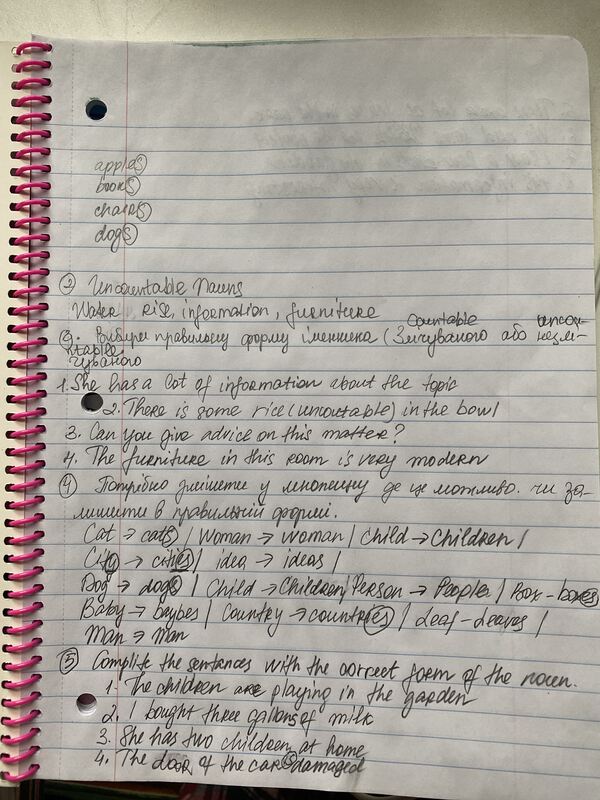 apples
books
chairs
dogs
② Uncountable Nouns
Water, rise, information, furniture
③. Вибери правильну форму іменника (Countable Злічуваного або uncountable незлічуваного
1. She has a lot of information about the topic
2. There is some rice (uncoutable) in the bowl
3. Can you give advice on this matter?
4. The furniture in this room is very modern
④ Потрібно змінити у множину де це можливо. чи за-
лишити в правильній формі.
Cat → cats | Woman → woman | Child → Children |
City → cities | idea → ideas |
Dog → dogs | Child → Children | Person → Peoples | Box - boxes
Baby → baybes | Country → countries | Leaf - Leaves |
Man → Man
⑤ Complite the sentences with the correct form of the noun.
1. The children are playing in the garden
2. I bought three gallons of milk
3. She has two children at home
4. The door of the car damaged